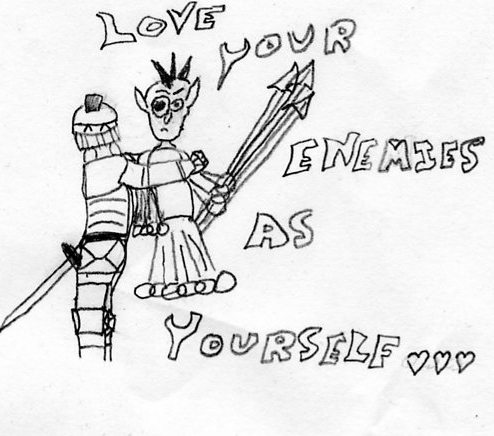 LOVE YOUR
ENEMIES
AS
YOURSELF ♡♡♡